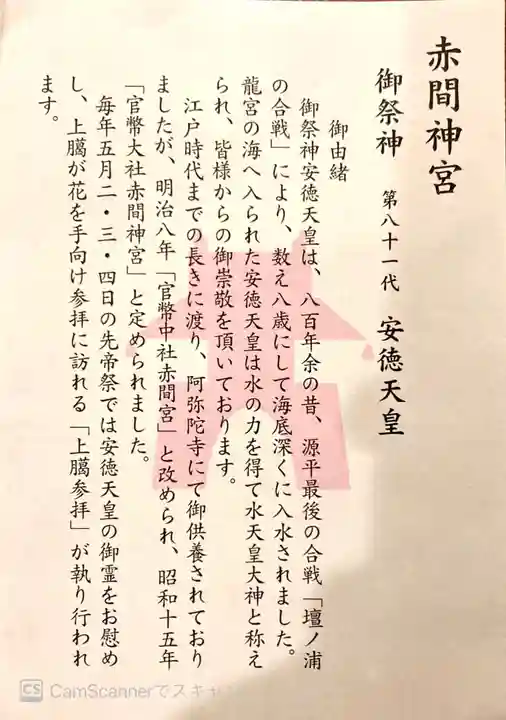 赤間神宮
御祭神 第八十一代 安徳天皇
御由緒
御祭神安徳天皇は、八百年余の昔、源平最後の合戦「壇ノ浦
の合戦」により、数え八歳にして海底深くに入水されました。
龍宮の海へ入られた安徳天皇は水の力を得て水天皇大神と称え
られ、皆様からの御崇敬を頂いております。
江戸時代までの長きに渡り、阿弥陀寺にて御供養されており
ましたが、明治八年「官幣中社赤間宮」と改められ、昭和十五年
「官幣大社赤間神宮」と定められました。
毎年五月二・三・四日の先帝祭では安徳天皇の御霊をお慰め
し、上臈が花を手向け参拝に訪れる「上臈参拝」が執り行われ
ます。
CS CamScannerでスキャ